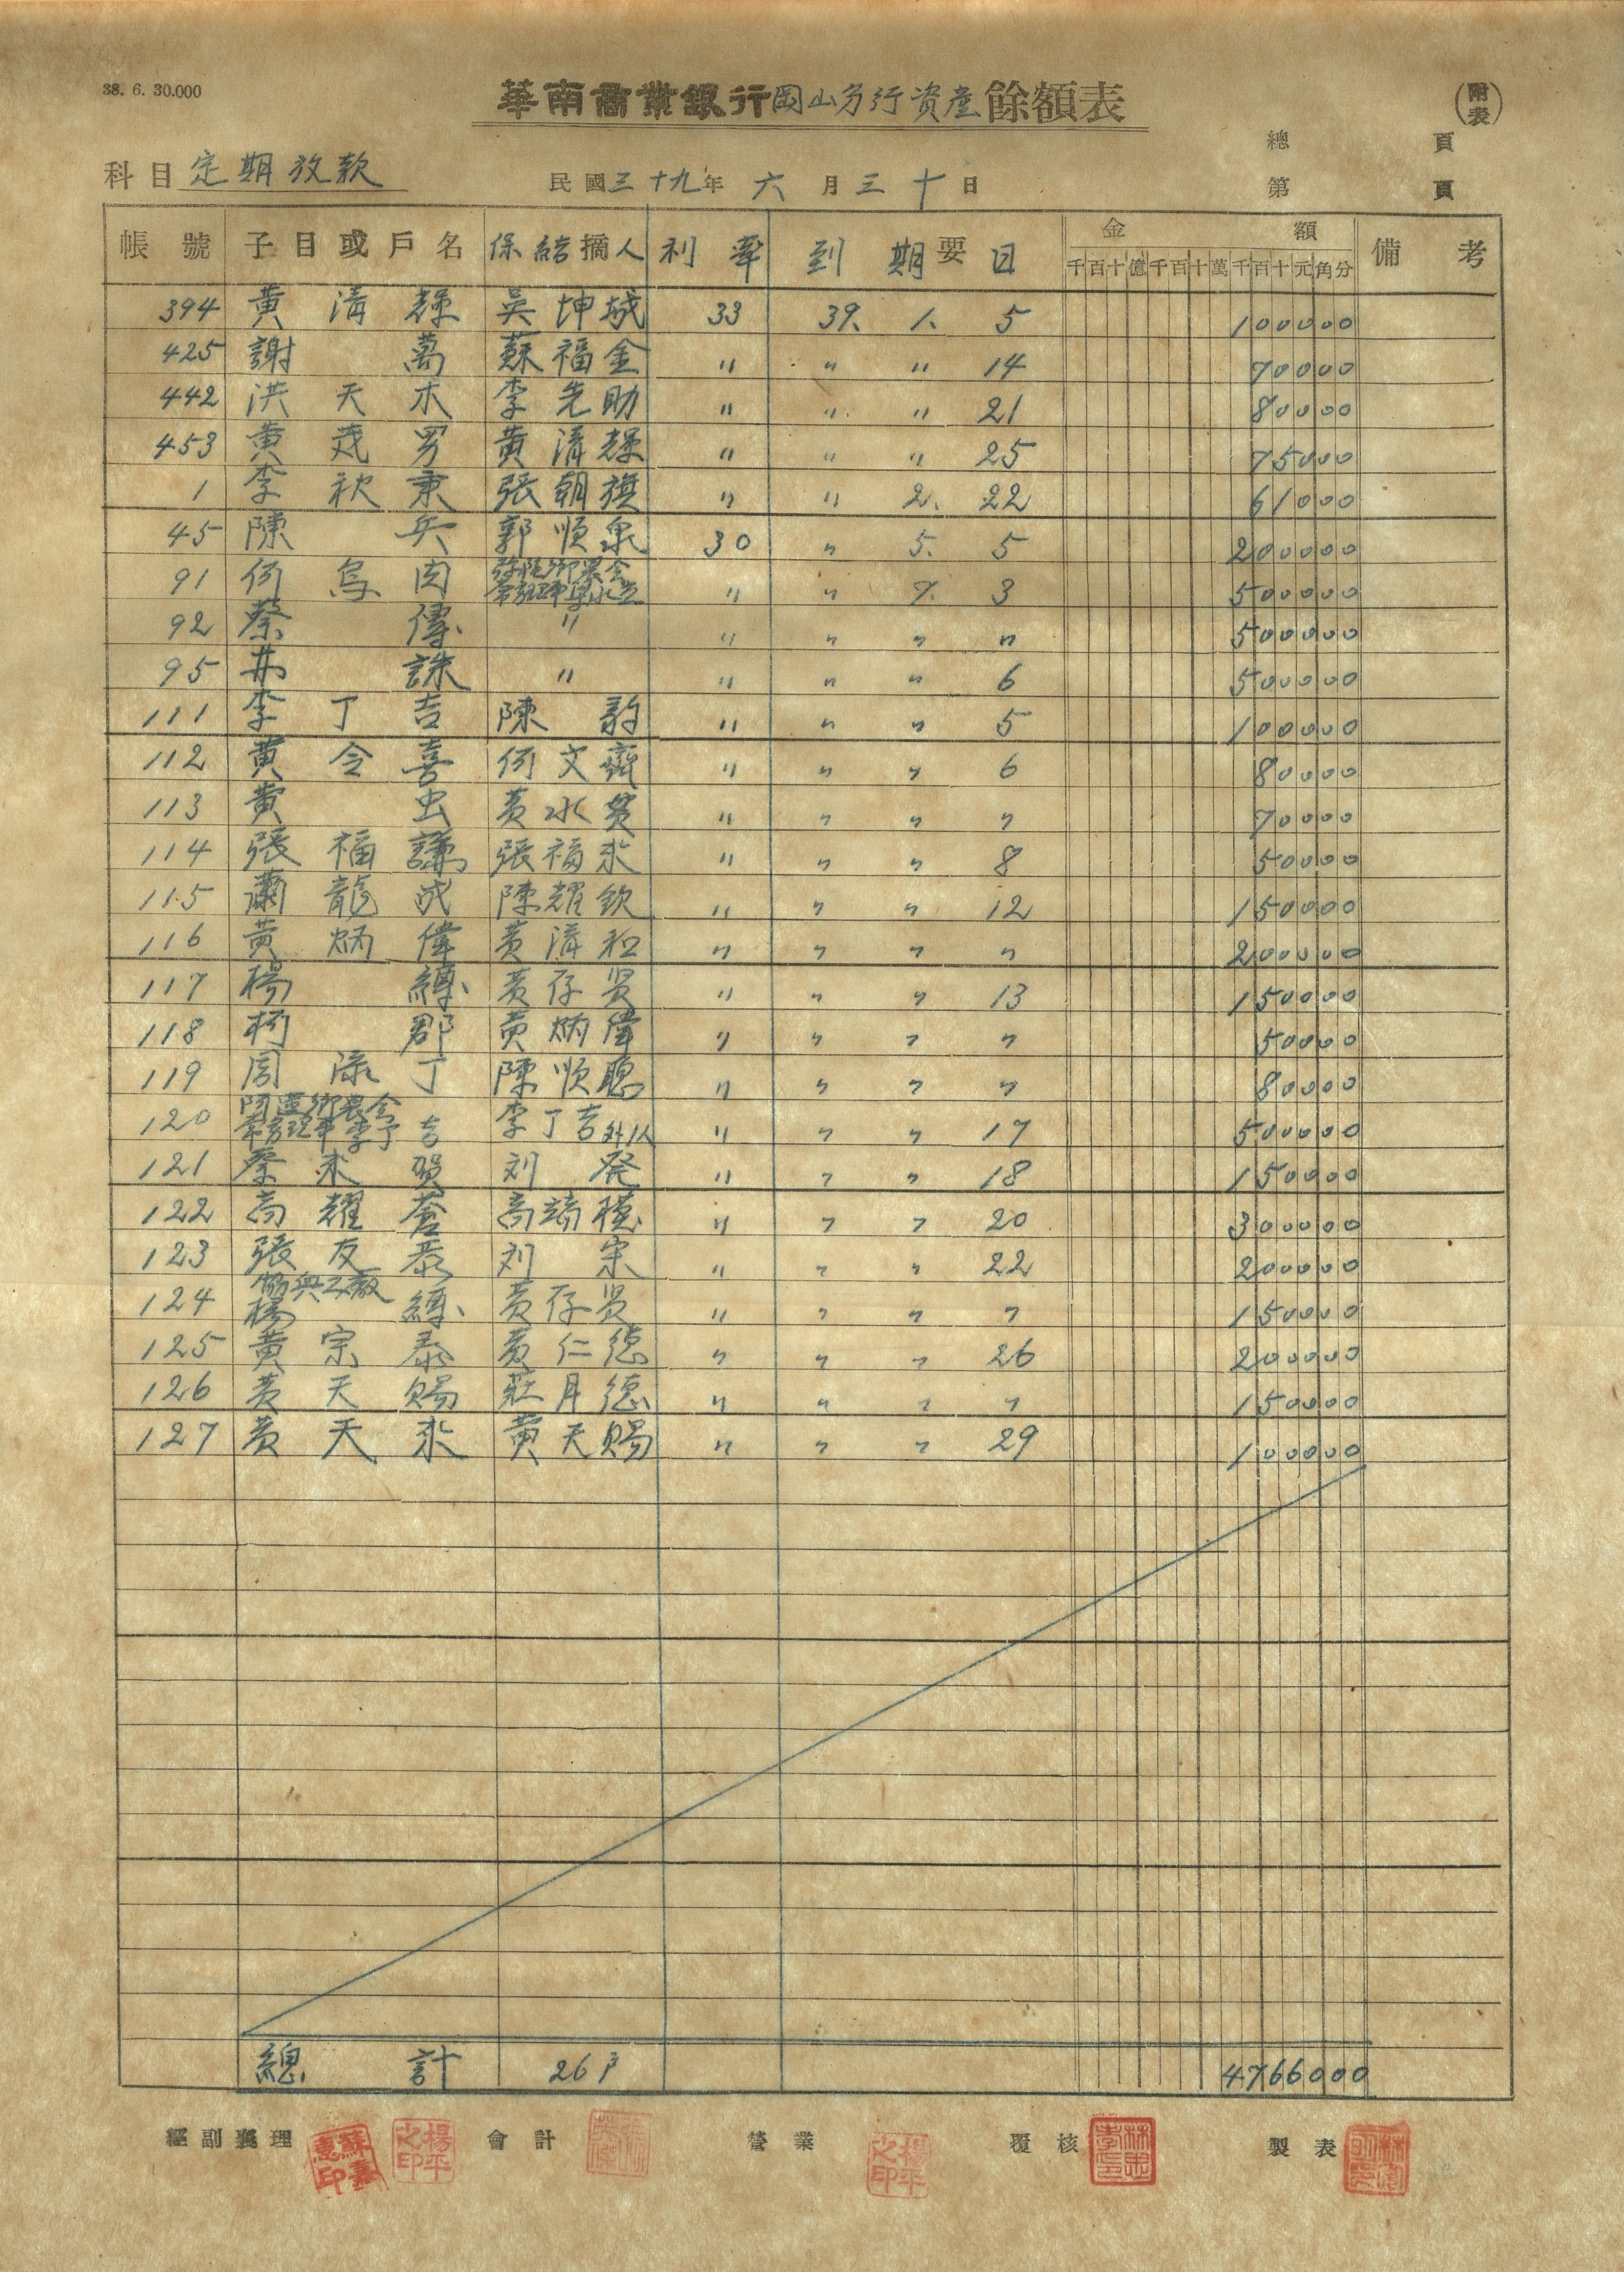 38. 6. 30.000
華南商業銀行岡山分行資産餘額表
(附表)
總 頁
科目 定期放款 民國三十九年 六 月 三十 日 第 頁
帳號 子目或戶名 保結摘人 利率 到期要日 金額 備考
千百十億千百十萬千百十元角分
394 黃清輝 吳坤城 33 39、 1、 5 100000
425 謝萬 蘇福金 〃 〃 〃 14 70000
442 洪天木 李先助 〃 〃 〃 21 80000
453 黃茂男 黃清輝 〃 〃 〃 25 75000
1 李秋東 張朝旗 〃 〃 2、 22 61000
45 陳兵 郭順泉 30 〃 5、 5 200000
91 何鳥肉 弥陀鄉農会
常務理事 〃 〃 7、 3 500000
92 蔡傳 〃 〃 〃 〃 〃 500000
95 誅 〃 〃 〃 〃 6 500000
111 李丁吉 陳 〃 〃 〃 5 100000
112 黃令喜 何文齊 〃 〃 〃 6 80000
113 黃虫 黃水 〃 〃 〃 〃 70000
114 張福謙 張福來 〃 〃 〃 8 50000
115 蕭龍成 陳耀欽 〃 〃 〃 12 150000
116 黃炳偉 黃清和 〃 〃 〃 〃 200000
117 楊縛 黃存贤 〃 〃 〃 13 150000
118 柯郡 黃炳偉 〃 〃 〃 〃 50000
119 周添丁 陳順聰 〃 〃 〃 〃 80000
120 鄉農会
常務理事李予吉 李丁吉外1人 〃 〃 〃 17 500000
121 蔡來賀 刘発 〃 〃 〃 18 150000
122 高耀蒼 高端穗 〃 〃 〃 20 300000
123 張友泰 刘宗 〃 〃 〃 22 200000
協興工廠
124 楊縛 黃存贤 〃 〃 〃 〃 150000
125 黃宗泰 黃仁德 〃 〃 〃 26 200000
126 黃天賜 莊月德 〃 〃 〃 〃 150000
127 黃天來 黃天賜 〃 〃 〃 29 100000
總計 26戶 4766000
經副襄理 蘇嘉惠印 楊平之印 會計 營業 楊平之印 覆核 製表